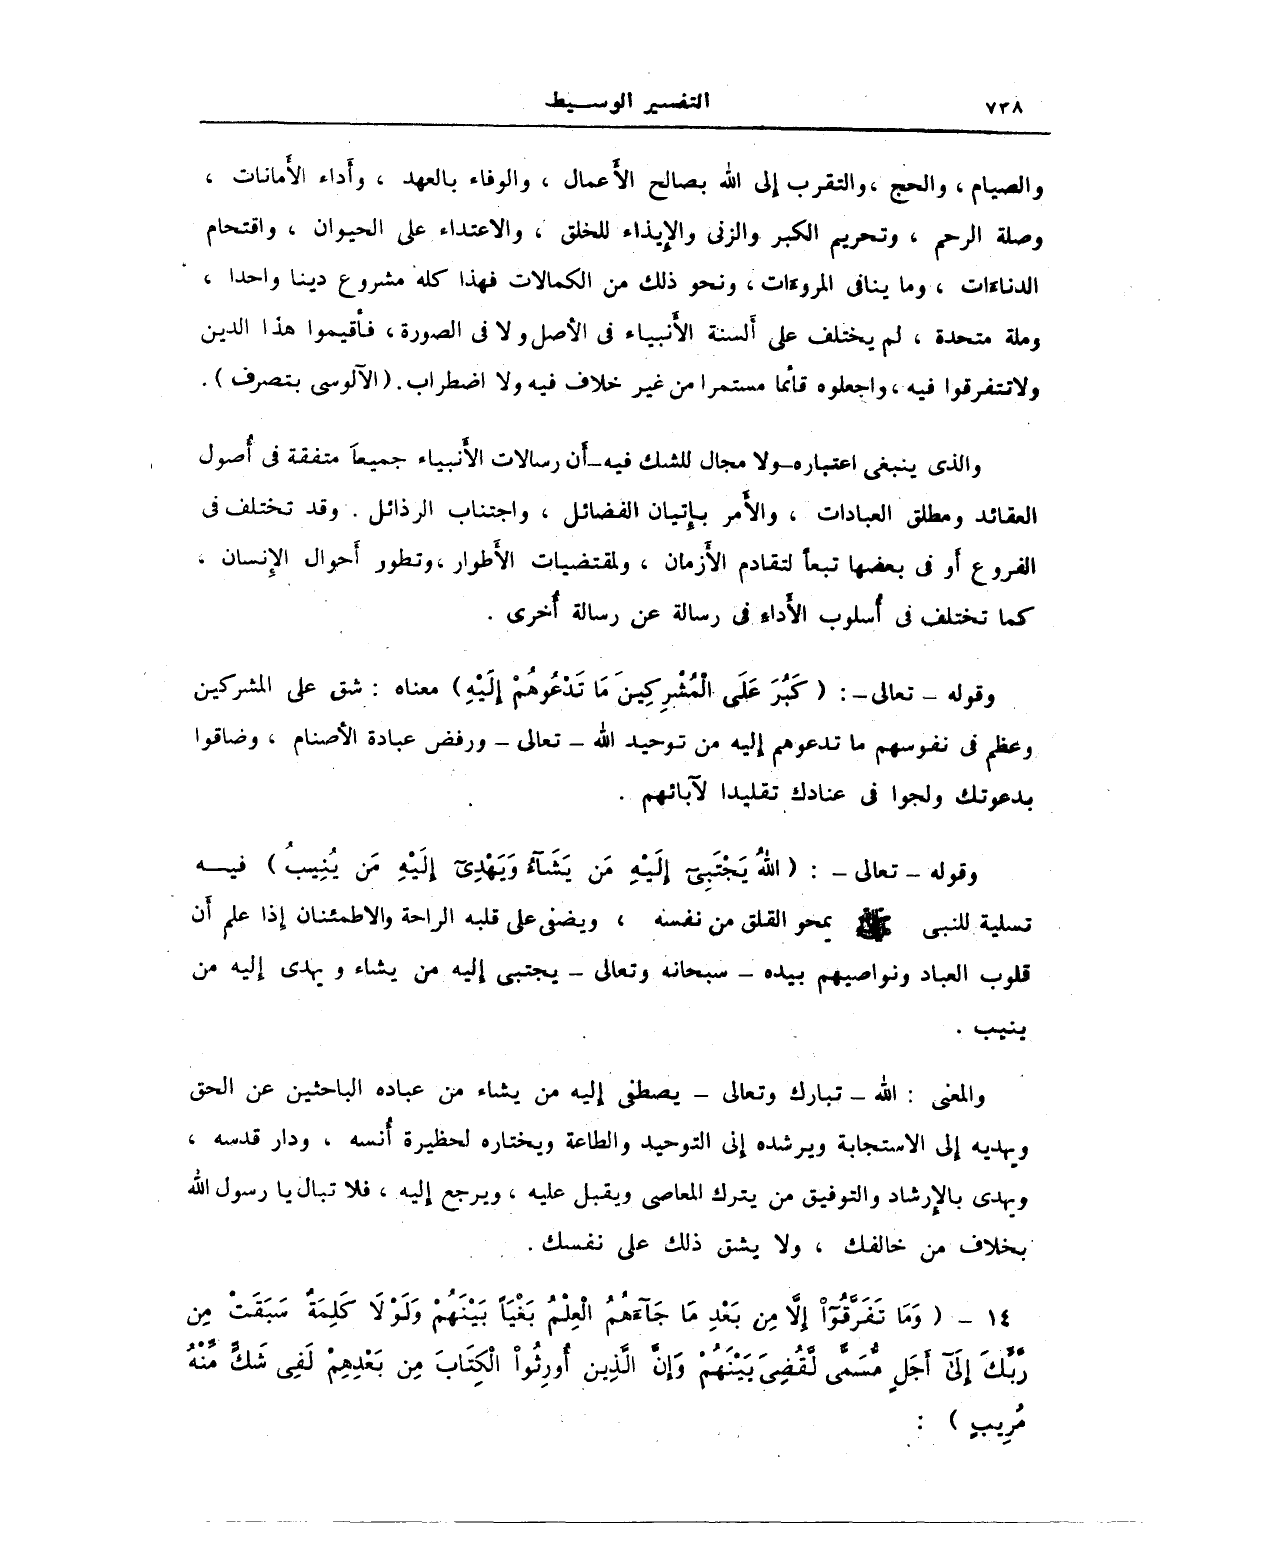 ٧٣٨
التفسير الوسيط
والصيام، والحج، والتقرب إلى الله بصالح الأعمال ، والوفاء بالعهد ، وأداء الأمانات ،
وصلة الرحم ، وتحريم الكبر والزنى والإيذاء للخلق ، والاعتداء على الحيوان ، واقتحام
الدناءات ، وما ينافى المروءات، ونحو ذلك من الكمالات فهذا كله مشروع دينا واحدا ،
وملة متحدة ، لم يختلف على ألسنة الأنبياء فى الأصل ولا فى الصورة، فأقيموا هذا الدين
ولاتتفرقوا فيه ، واجعلوه قائما مستمرا من غير خلاف فيه ولا اضطراب. (الآلوسى بتصرف).
والذى ينبغى اعتباره–ولا مجال للشك فيه–أن رسالات الأنبياء جميعاً متفقة فى أصول
العقائد ومطلق العبادات ، والأمر بإتيان الفضائل ، واجتناب الرذائل . وقد تختلف فى
الفروع أو فى بعضها تبعاً لتقادم الأزمان ، ولمقتضيات الأطوار ،وتطور أحوال الإنسان ،
كما تختلف فى أسلوب الأداء فى رسالة عن رسالة أُخرى .
وقوله – تعالى –: (كَبُرَ عَلَى الْمُشْرِكِينَ مَا تَدْعُوهُمْ إِلَيْهِ) معناه : شق على المشركين
وعظم فى نفوسهم ما تدعوهم إليه من توحيد الله – تعالى – ورفض عبادة الأصنام ، وضاقوا
بدعوتك ولجوا فى عنادك تقليدا لآبائهم .
وقوله – تعالى – : (اللهُ يَجْتَبِىٓ إِلَيْهِ مَن يَشَآءُ وَيَهْدِىٓ إِلَيْهِ مَن يُنِيبُ) فيـــه
تسلية للنبى ﷺ يمحو القلق من نفسه ، ويضفى على قلبه الراحة والاطمئنان إذا علم أن
قلوب العباد ونواصيهم بيده – سبحانه وتعالى – يجتبى إليه من يشاء ويهدى إليه من
ينيب .
والمعنى : الله – تبارك وتعالى – يصطفى إليه من يشاء من عباده الباحثين عن الحق
ويهديه إلى الاستجابة ويرشده إلى التوحيد والطاعة ويختاره لحظيرة أُنسه ، ودار قدسه ،
ويهدى بالإرشاد والتوفيق من يترك المعاصى ويقبل عليه ، ويرجع إليه ، فلا تبال يا رسول الله
بخلاف من خالفك ، ولا يشق ذلك على نفسك .
١٤ – (وَمَا تَفَرَّقُوٓاْ إِلَّا مِن بَعْدِ مَا جَآءَهُمُ الْعِلْمُ بَغْيَاً بَيْنَهُمْ وَلَوْلَا كَلِمَةٌ سَبَقَتْ مِن
رَّبِّكَ إِلَىٰٓ أَجَلٍ مُّسَمًّى لَّقُضِىَ بَيْنَهُمْ وَإِنَّ الَّذِينَ أُورِثُواْ الْكِتَابَ مِن بَعْدِهِمْ لَفِى شَكٍّ مِّنْهُ
مُرِيبٍ) :